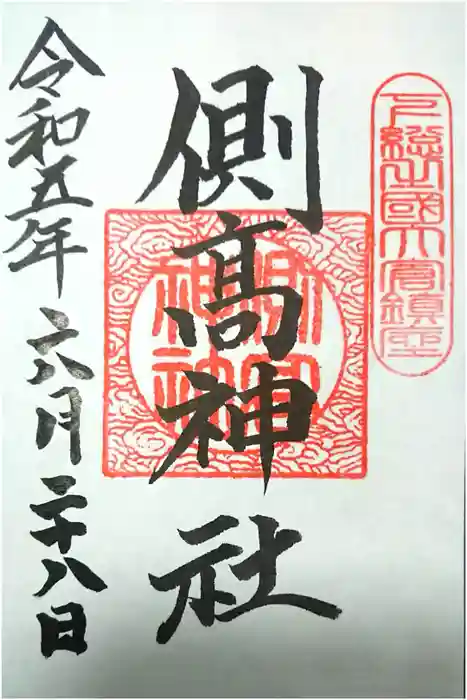 下總之國大倉鎮座
側髙神社
側高
神社
令和五年六月二十八日